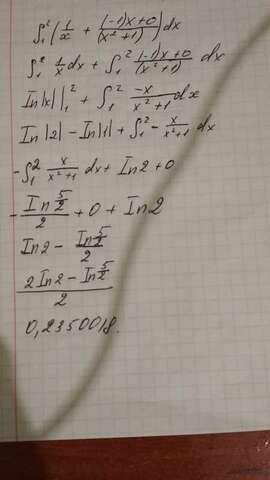 ∫₁²(1/x + ((-1)x+0)/(x²+1))dx
∫₁² 1/x dx + ∫₁² ((-1)x+0)/(x²+1) dx
In|x||₁² + ∫₁² -x/(x²+1) dx
In|2| - In|1| + ∫₁² - x/(x²+1) dx
-∫₁² x/(x²+1) dx + In2 + 0
- (In 5/2)/2 + 0 + In2
In2 - (In 5/2)/2
(2In2 - In 5/2)/2
0,2350018.